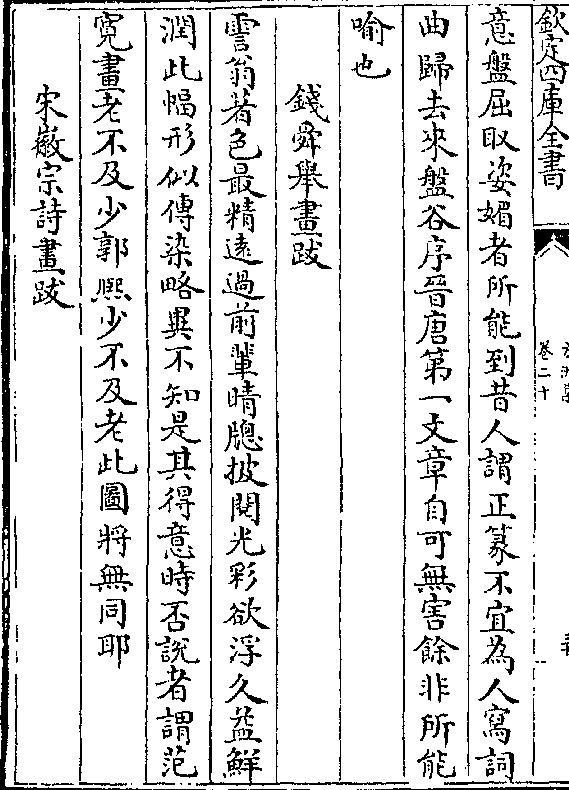 欽定四庫全書
卷二十
意盤屈取姿媚者所能到昔人謂正篆不宜為人寫詞
曲歸去來盤谷序晉唐第一文章自可無害餘非所能
喻也
錢舜舉畫跋
霅翁著色最精遠過前輩晴牕披閱光彩欲浮久益鮮
潤此幅形似傳染略異不知是其得意時否說者謂范
寛畫老不及少郭熈少不及老此圖將無同耶
宋徽宗詩畫跋